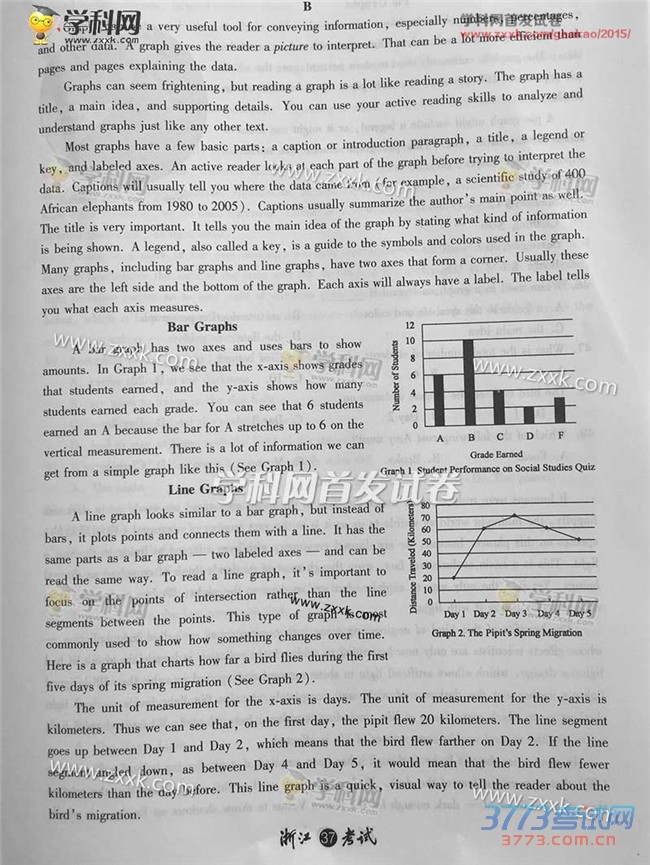 B
学科网
www.zxxk.com/gaokao/2015/
学科网首发试卷
a very useful tool for conveying information, especially numbers, percentages,
and other data. A graph gives the reader a picture to interpret. That can be a lot more efficient than
pages and pages explaining the data.
Graphs can seem frightening, but reading a graph is a lot like reading a story. The graph has a
title, a main idea, and supporting details. You can use your active reading skills to analyze and
understand graphs just like any other text.
Most graphs have a few basic parts: a caption or introduction paragraph, a title, a legend or
key, and labeled axes. An active reader looks at each part of the graph before trying to interpret the
data. Captions will usually tell you where the data came from (for example, a scientific study of 400
African elephants from 1980 to 2005). Captions usually summarize the author's main point as well.
The title is very important. It tells you the main idea of the graph by stating what kind of information
is being shown. A legend, also called a key, is a guide to the symbols and colors used in the graph.
Many graphs, including bar graphs and line graphs, have two axes that form a corner. Usually these
axes are the left side and the bottom of the graph. Each axis will always have a label. The label tells
you what each axis measures.
Bar Graphs
A bar graph has two axes and uses bars to show
amounts. In Graph 1, we see that the x-axis shows grades
that students earned, and the y-axis shows how many
students earned each grade. You can see that 6 students
earned an A because the bar for A stretches up to 6 on the
vertical measurement. There is a lot of information we can
get from a simple graph like this (See Graph 1).
Number of Students
12
10
8
6
4
2
0
A B C D F
Grade Earned
Graph 1. Student Performance on Social Studies Quiz
Line Graphs
A line graph looks similar to a bar graph, but instead of
bars, it plots points and connects them with a line. It has the
same parts as a bar graph — two labeled axes — and can be
read the same way. To read a line graph, it's important to
focus on the points of intersection rather than the line
segments between the points. This type of graph is most
commonly used to show how something changes over time.
Here is a graph that charts how far a bird flies during the first
five days of its spring migration (See Graph 2).
Distance Traveled (Kilometers)
80
70
60
50
40
30
20
10
0
Day 1 Day 2 Day 3 Day 4 Day 5
Graph 2. The Pipit's Spring Migration
The unit of measurement for the x-axis is days. The unit of measurement for the y-axis is
kilometers. Thus we can see that, on the first day, the pipit flew 20 kilometers. The line segment
goes up between Day 1 and Day 2, which means that the bird flew farther on Day 2. If the line
segment angled down, as between Day 4 and Day 5, it would mean that the bird flew fewer
kilometers than the day before. This line graph is a quick, visual way to tell the reader about the
bird's migration.
浙江 37 考试
学科网
www.zxxk.com
学科网
www.zxxk.com
www.zxxk.com
学科网
www.zxxk.com
学科网首发试卷
学科网
www.zxxk.com
学科网
www.zxxk.com
学科网
www.zxxk.com
3773考试网
3773.com.cn